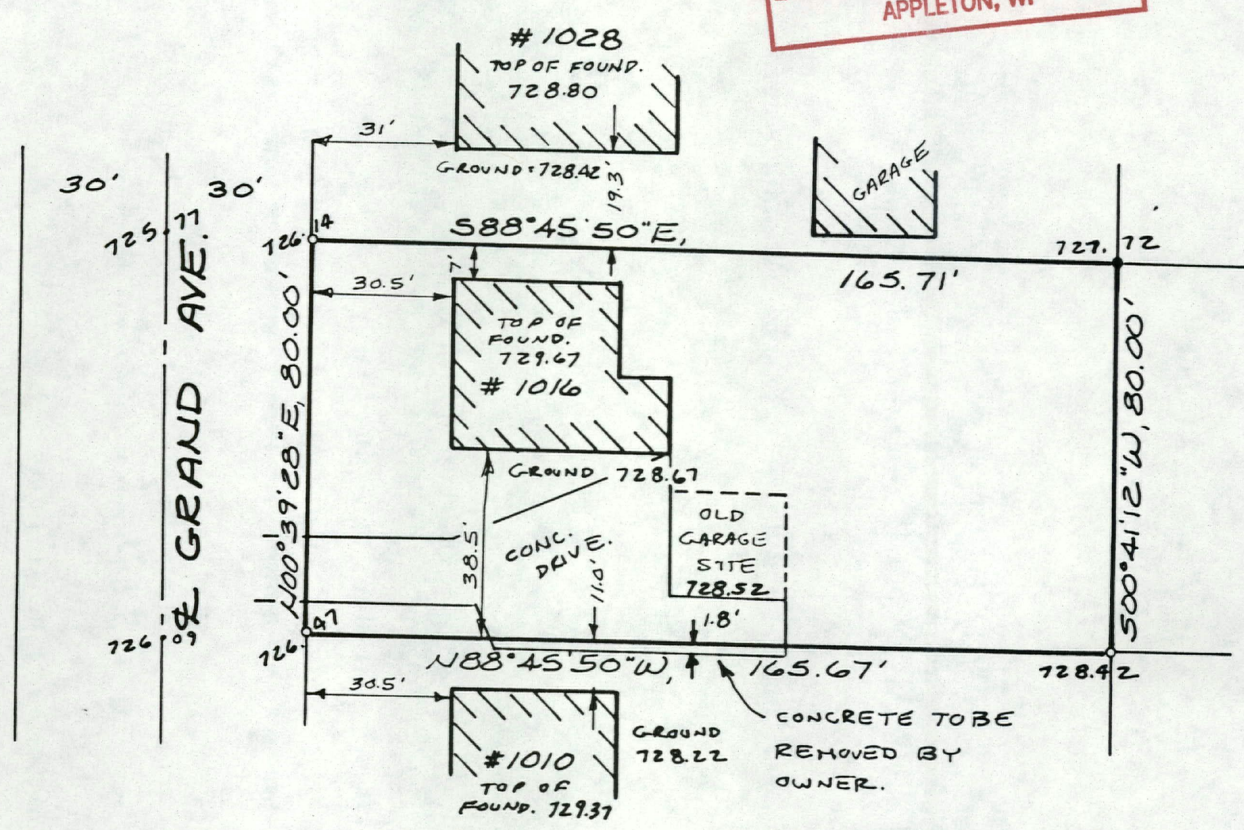 APPLETON, WI
# 1028
TOP OF FOUND.
728.80
31'
GROUND = 728.42
19.3'
GARAGE
30'
30'
725.77
726.14
S88°45'50"E,
165.71'
727.72
7'
30.5'
TOP OF
FOUND.
729.67
# 1016
℄ GRAND AVE.
N00°39'28"E, 80.00'
S00°41'12"W, 80.00'
GROUND 728.67
38.5'
CONC.
DRIVE.
11.0'
OLD
GARAGE
SITE
728.52
1.8'
726.09
726.47
N88°45'50"W,
165.67'
728.42
30.5'
GROUND
728.22
#1010
TOP OF
FOUND. 729.37
CONCRETE TO BE
REMOVED BY
OWNER.